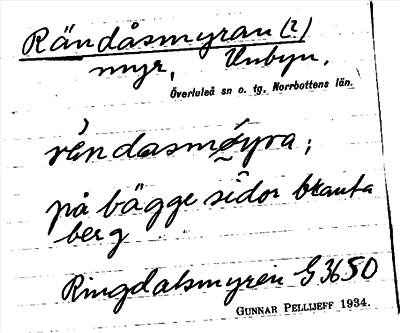 Rändåsmyran (?)
myr, Unbyn,
Överluleå sn o. tg. Norrbottens län.
råndasmøyra;
på bägge sidor branta
berg
Ringdalsmyren G 3650
GUNNAR PELLIJEFF 1934.